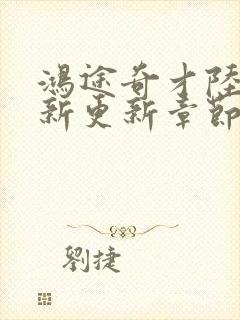 鴻途奇才陸
新更新章節
劉捷